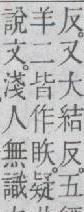 反。又大結反。五
羊二皆作眣。疑
說文。淺人無識